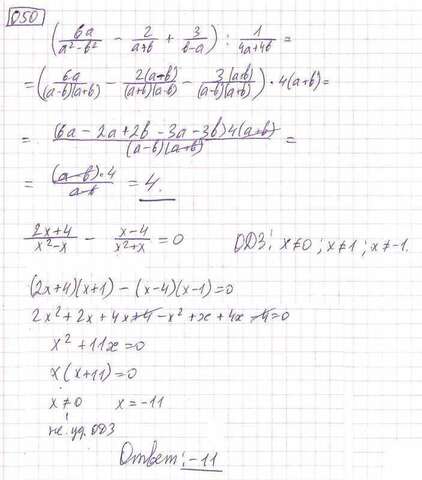 050
(6a/(a²-b²) - 2/(a+b) + 3/(b-a)) : 1/(4a+4b) =
= (6a/((a-b)(a+b)) - 2(a-b)/((a+b)(a-b)) - 3(a+b)/((a-b)(a+b))) · 4(a+b) =
= (6a - 2a + 2b - 3a - 3b)4(a+b)/((a-b)(a+b)) =
= (a-b)·4/(a-b) = 4.
(2x+4)/(x²-x) - (x-4)/(x²+x) = 0 ОДЗ: x≠0; x≠1; x≠-1.
(2x+4)(x+1) - (x-4)(x-1)=0
2x²+2x+4x+4-x²+x+4x-4=0
x²+11x=0
x(x+11)=0
x≠0 x=-11
не уд. ОДЗ
Ответ: -11